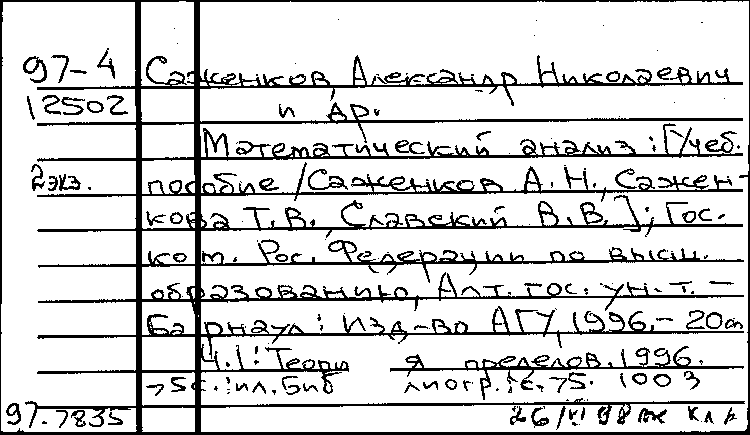 97-4 Саженков, Александр Николаевич
12502 и др.
Математический анализ: [Учеб.
2экз. пособие / Саженков А.Н., Сажен-
кова Т.В., Славский В.В.]; Гос.
ком. Рос. Федерации по высш.
образованию, Алт. гос. ун-т. -
Барнаул: Изд-во АГУ, 1996.- 20см
Ч.1: Теория пределов. 1996.
75с.: ил. Библиогр.: с.75. 100 э
97.7835 26/VI 98 кл р